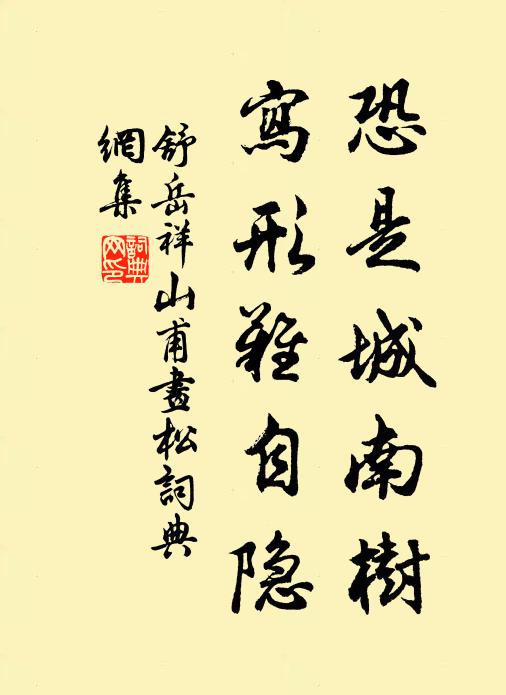 恐是城南樹
寫形難自隐
舒岳祥山甫畫松詞典
網集
詞典
网印